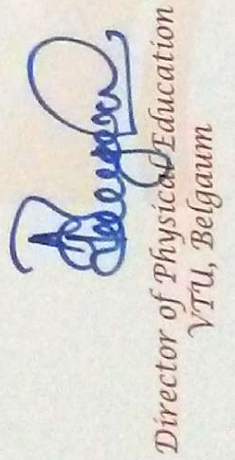 Director of Physical Education
VTU, Belgaum